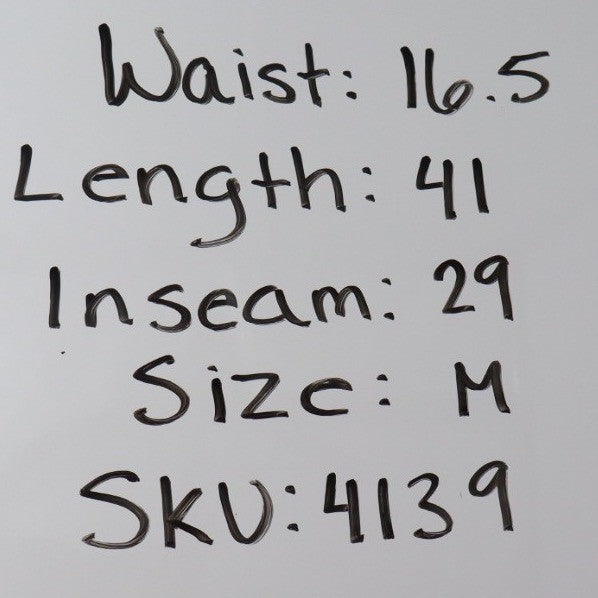 Waist: 16.5
Length: 41
Inseam: 29
Size: M
SKU: 4139